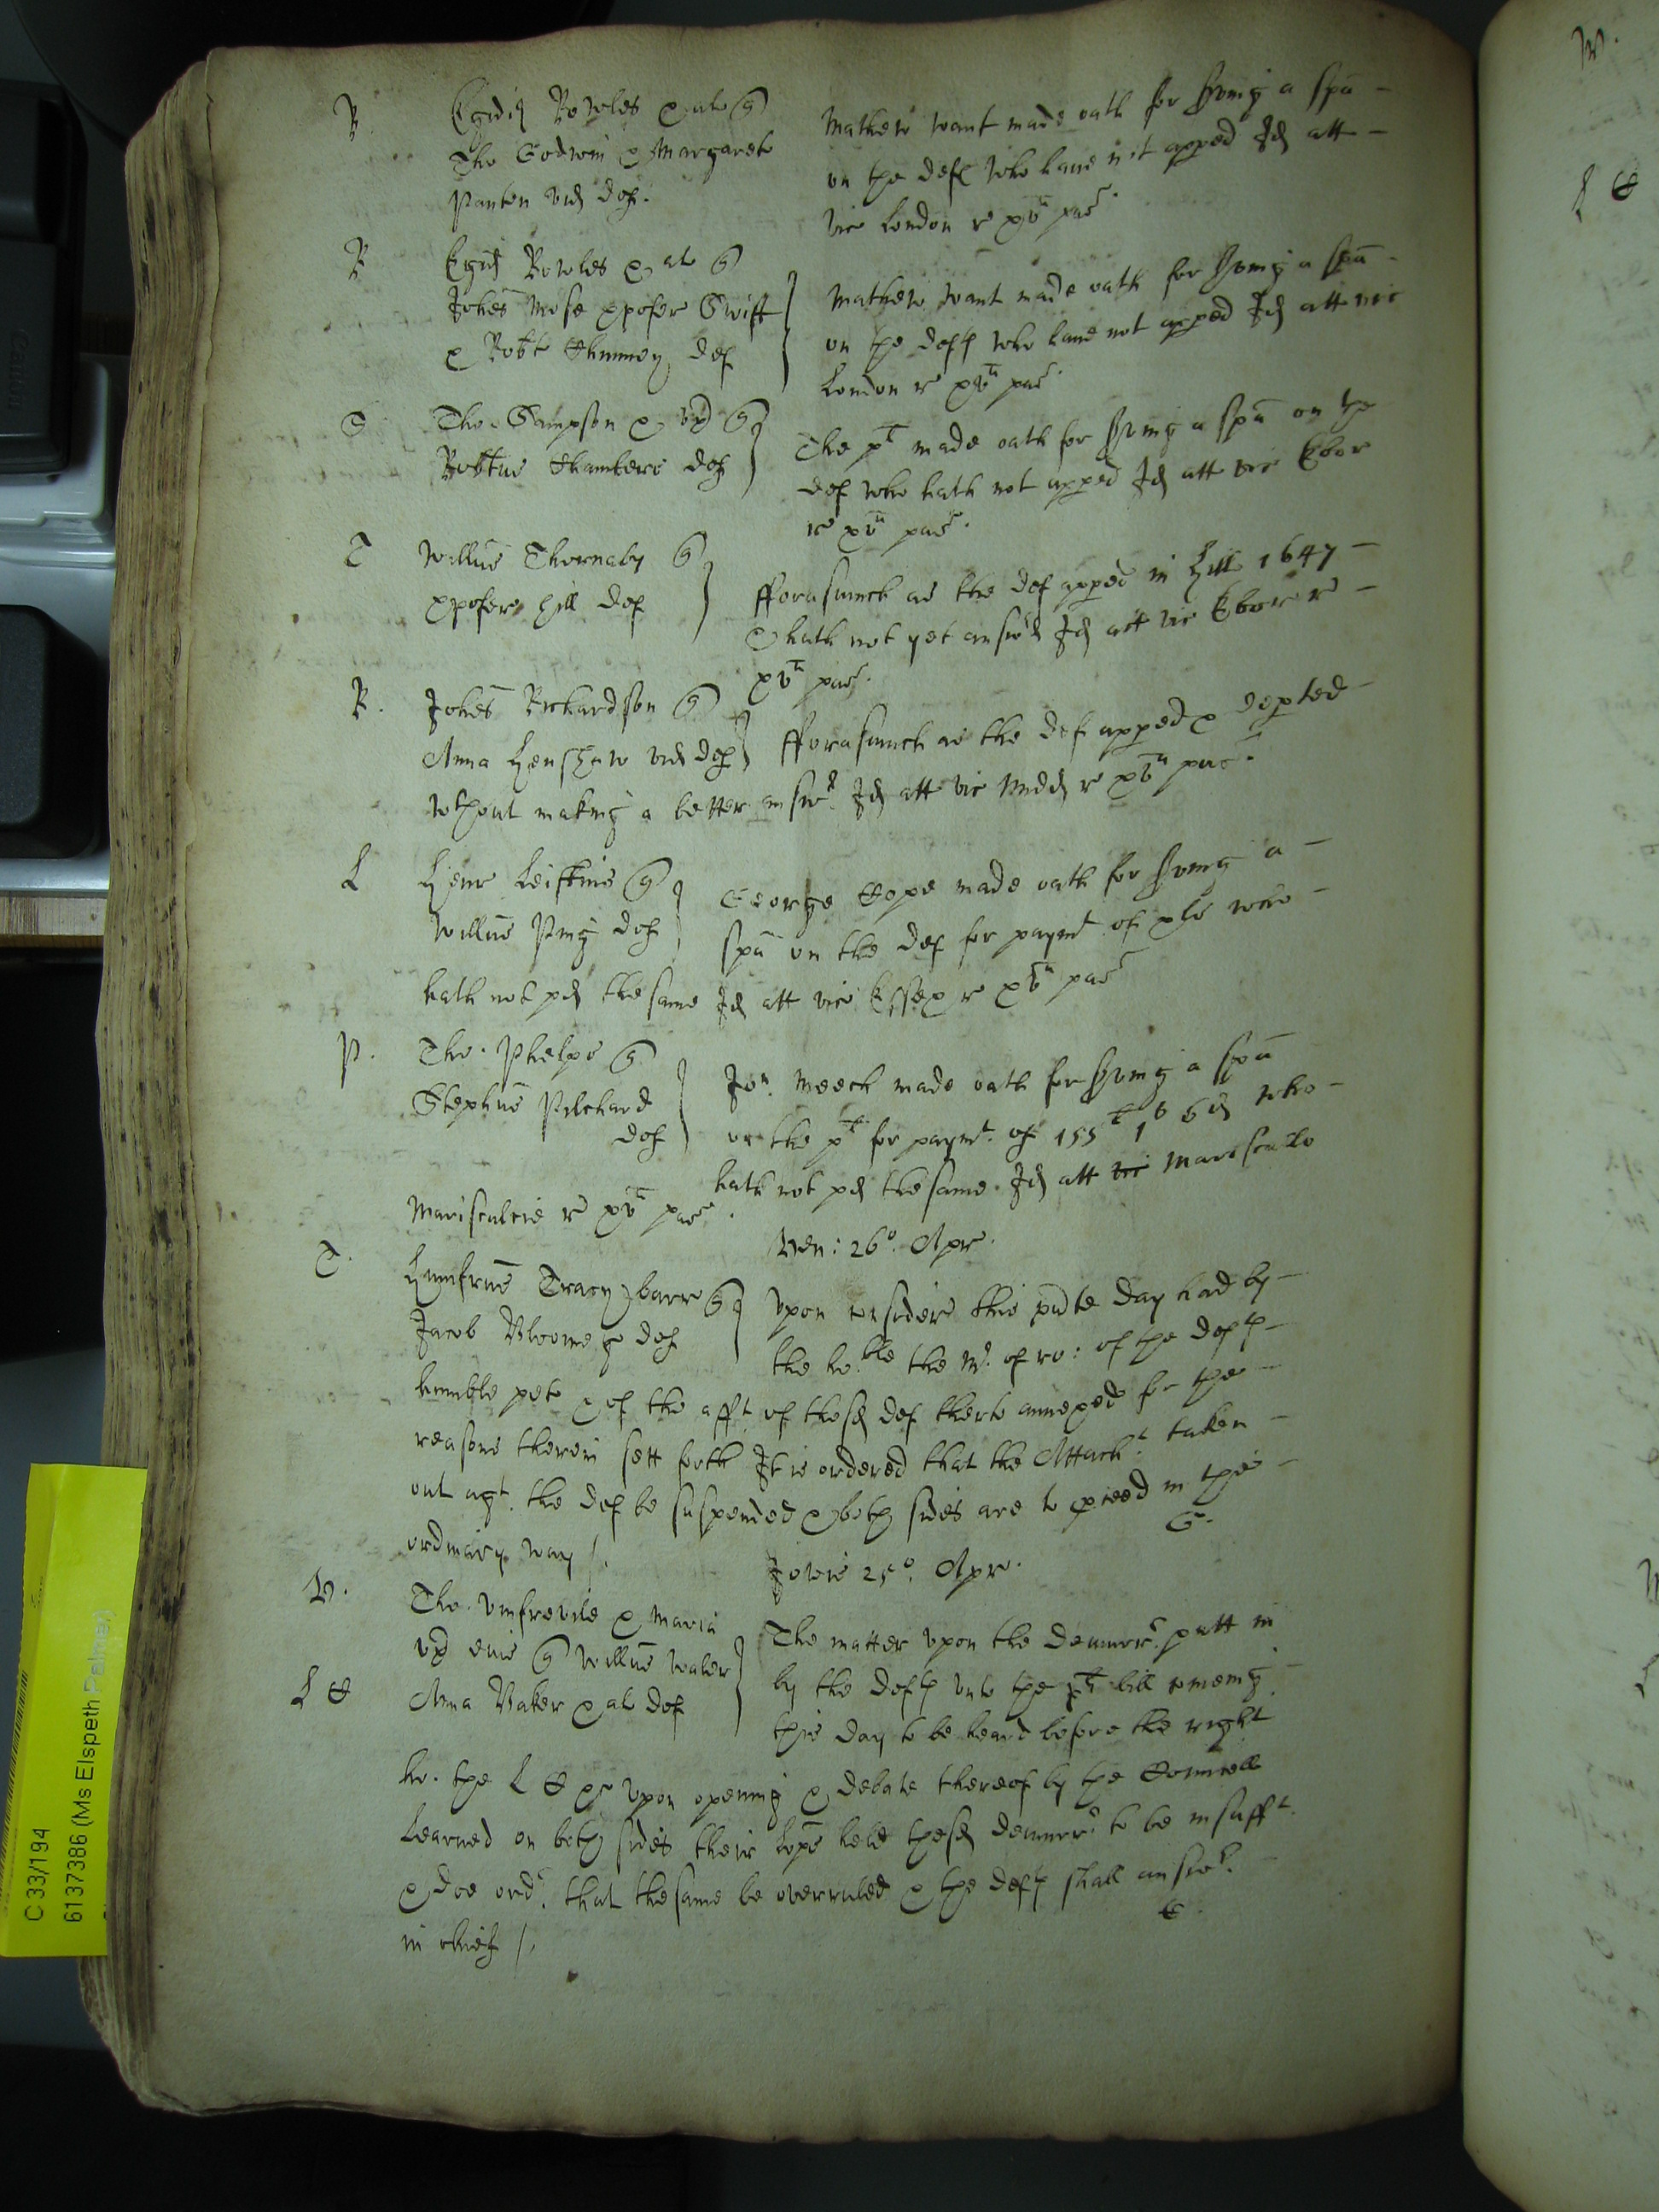 R. Egidij Rowles & al q
Tho Godwin & Margareta
Panton vid def.
Mathew Want made oath for srving a spa
on the defts who have not apped Id att
vic London re xv pas
R Egid Rowles & al q
Johes Mose Xpofer Swift
& Robte Chimney def
Mathew Want made oath for srving a spa
on the defts who have not apped Id att vic
London re xv pas
S Tho. Sampson & ux q
Robtus Chambers def
The plt made oath for srving a spa on the
def who hath not apped Id att vic Ebor
re xv pas
T Willus Thornaby q
Xpofer Hill def
fforasmuch as the def apped in Hill 1647
& hath not yet answd Id att vic Ebor re
xv pas
R. Johes Richardson q
Anna Henshaw vid def
fforasmuch as the def apped & depted
wthout making a better answr Id att vic Midd re xv pas
L Henr q
Willus Ping def
George Cope made oath for srving a
spa on the def for paymt of xls who
hath not pd the same Id att vic Essex re xv pas
P. Tho. Phelps q
Stephus Pilchard
def
Jon Meech made oath for srving a spa
on the plt for paymt of 155l 1s 6d who
hath not pd the same. Id att vic Marescallo
Mariscalcie re xv pas
Ven: 26o Apr.
T. Humfrus Tracy barr q
Jacob def
Upon consider this pnte day had by
the hoble the Mr of ro: of the defts
humble peto & of the afft of the sd def therto annexed for the
reasons therein sett forth It is ordered that the Attacht taken
out agt the def be suspended & both sides are to pceed in the
ordinary way /.
G.
Jovis 25o Apr.
V. Tho. Umfrevile & Maria
ux eius q Willus
L C Anna Baker & al def
The matter upon the demurr putt in
by the defts unto the plt bill comeing
this day to be heard before the right
ho. the L C rs Upon opening & debate thereof by the Councell
Learned on both sides their Lopps held the sd demurr to be insufft
& doe ordr that the same be overruled & the defts shall answr
in chief /.
E.
W.
L C
C 33/194
6137386 (Ms Elspeth Palmer)
Canon